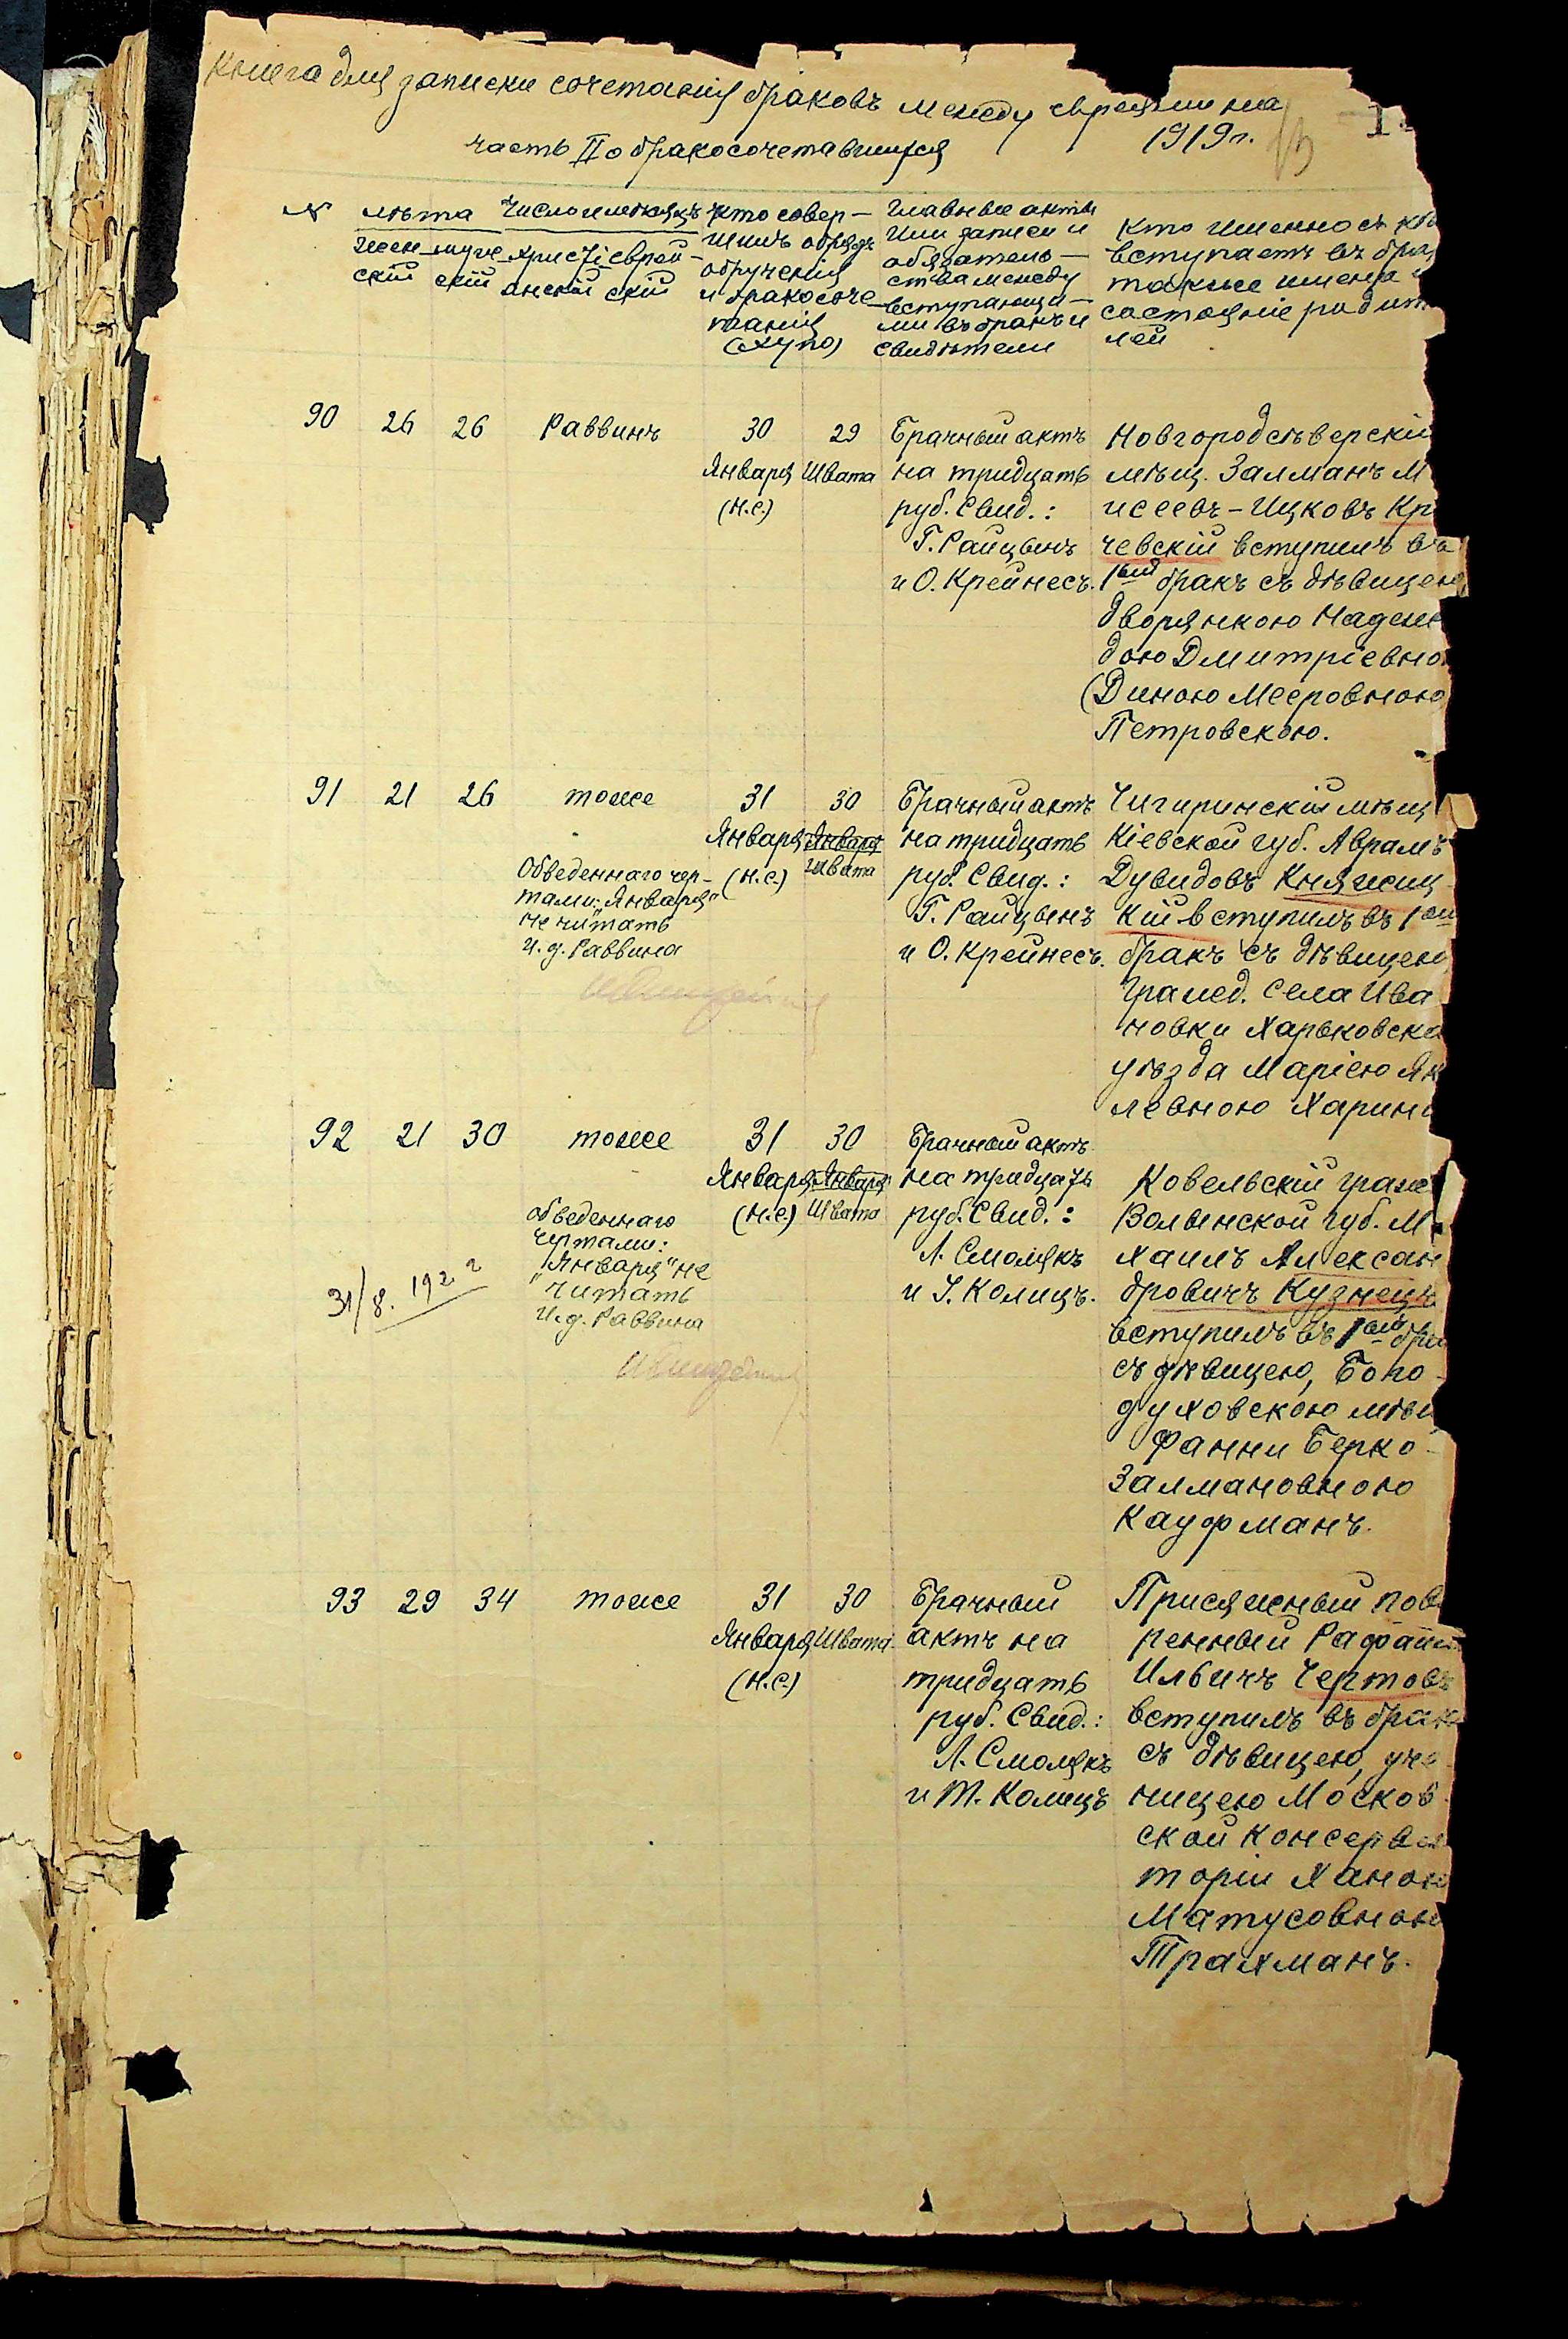 Книга для записки сочетанія браковъ между евреями на
1919 г.
часть II о бракосочетавшихся
№ лѣта Число и мѣсяцъ Кто совер-
шилъ обрядъ
обрученія
и бракосоче-
танія
(хупо)
жен- муже- христі- еврей-
скій скій анскій скій
Главные акты
или записи и
обязатель-
ства между
вступающи-
ми въ бракъ и
свидѣтели
Кто именно съ
вступаетъ въ
также имена
состояніе
лей
90 26 26 Раввинъ 30 29
Января Швата
(н.с.)
Брачный актъ
на тридцать
руб. Свид.:
Г. Райцынъ
и О. Крейнесъ.
Новгородсѣверскій
мѣщ. Залманъ М
исеевъ-Ицковъ Кр
чевскій вступилъ въ
1ый бракъ съ дѣвицею
дворянкою Надеж
дою Дмитріевно
(Диною Мееровною
Петровскою.
91 21 26 тоже 31 30
Января Января
(н.с.) Швата
Обведеннаго чер-
тами: „Января"
не читать
И.д. Раввина
Брачный актъ
на тридцать
руб. Свид.:
Г. Райцынъ
и О. Крейнесъ.
Чигиринскій мѣщ
Кіевской губ. Аврамъ
Дувидовъ Княжиц
кій вступилъ въ 1ый
бракъ съ дѣвицею
гражд. села Ива
новки Харьковска
уѣзда Маріею Як
левною Харин
92 21 30 тоже 31 30
Января Января
(н.с.) Швата
обведеннаго
чертами:
„Января" не
читать
И.д. Раввина
31/8. 1922
Брачный актъ
на тридцать
руб. Свид.:
Л. Смолякъ
и І. Колицъ.
Ковельскій граж
Волынской губ. М
хаилъ Алексан
дровичъ Кузнец
вступилъ въ 1ый бра
съ дѣвицею, Бого-
духовскою мѣщ
Фанни Берко-
Залмановною
Кауфманъ.
93 29 34 тоже 31 30
Января Швата
(н.с.)
Брачный
актъ на
тридцать
руб. Свид.:
Л. Смолякъ
и М. Колицъ
Присяжный пов
ренный Рафаил
Ильичъ Чертовъ
вступилъ въ бракъ
съ дѣвицею, уче
ницею Москов-
ской консерва
торіи Ханою
Матусовною
Трахманъ.